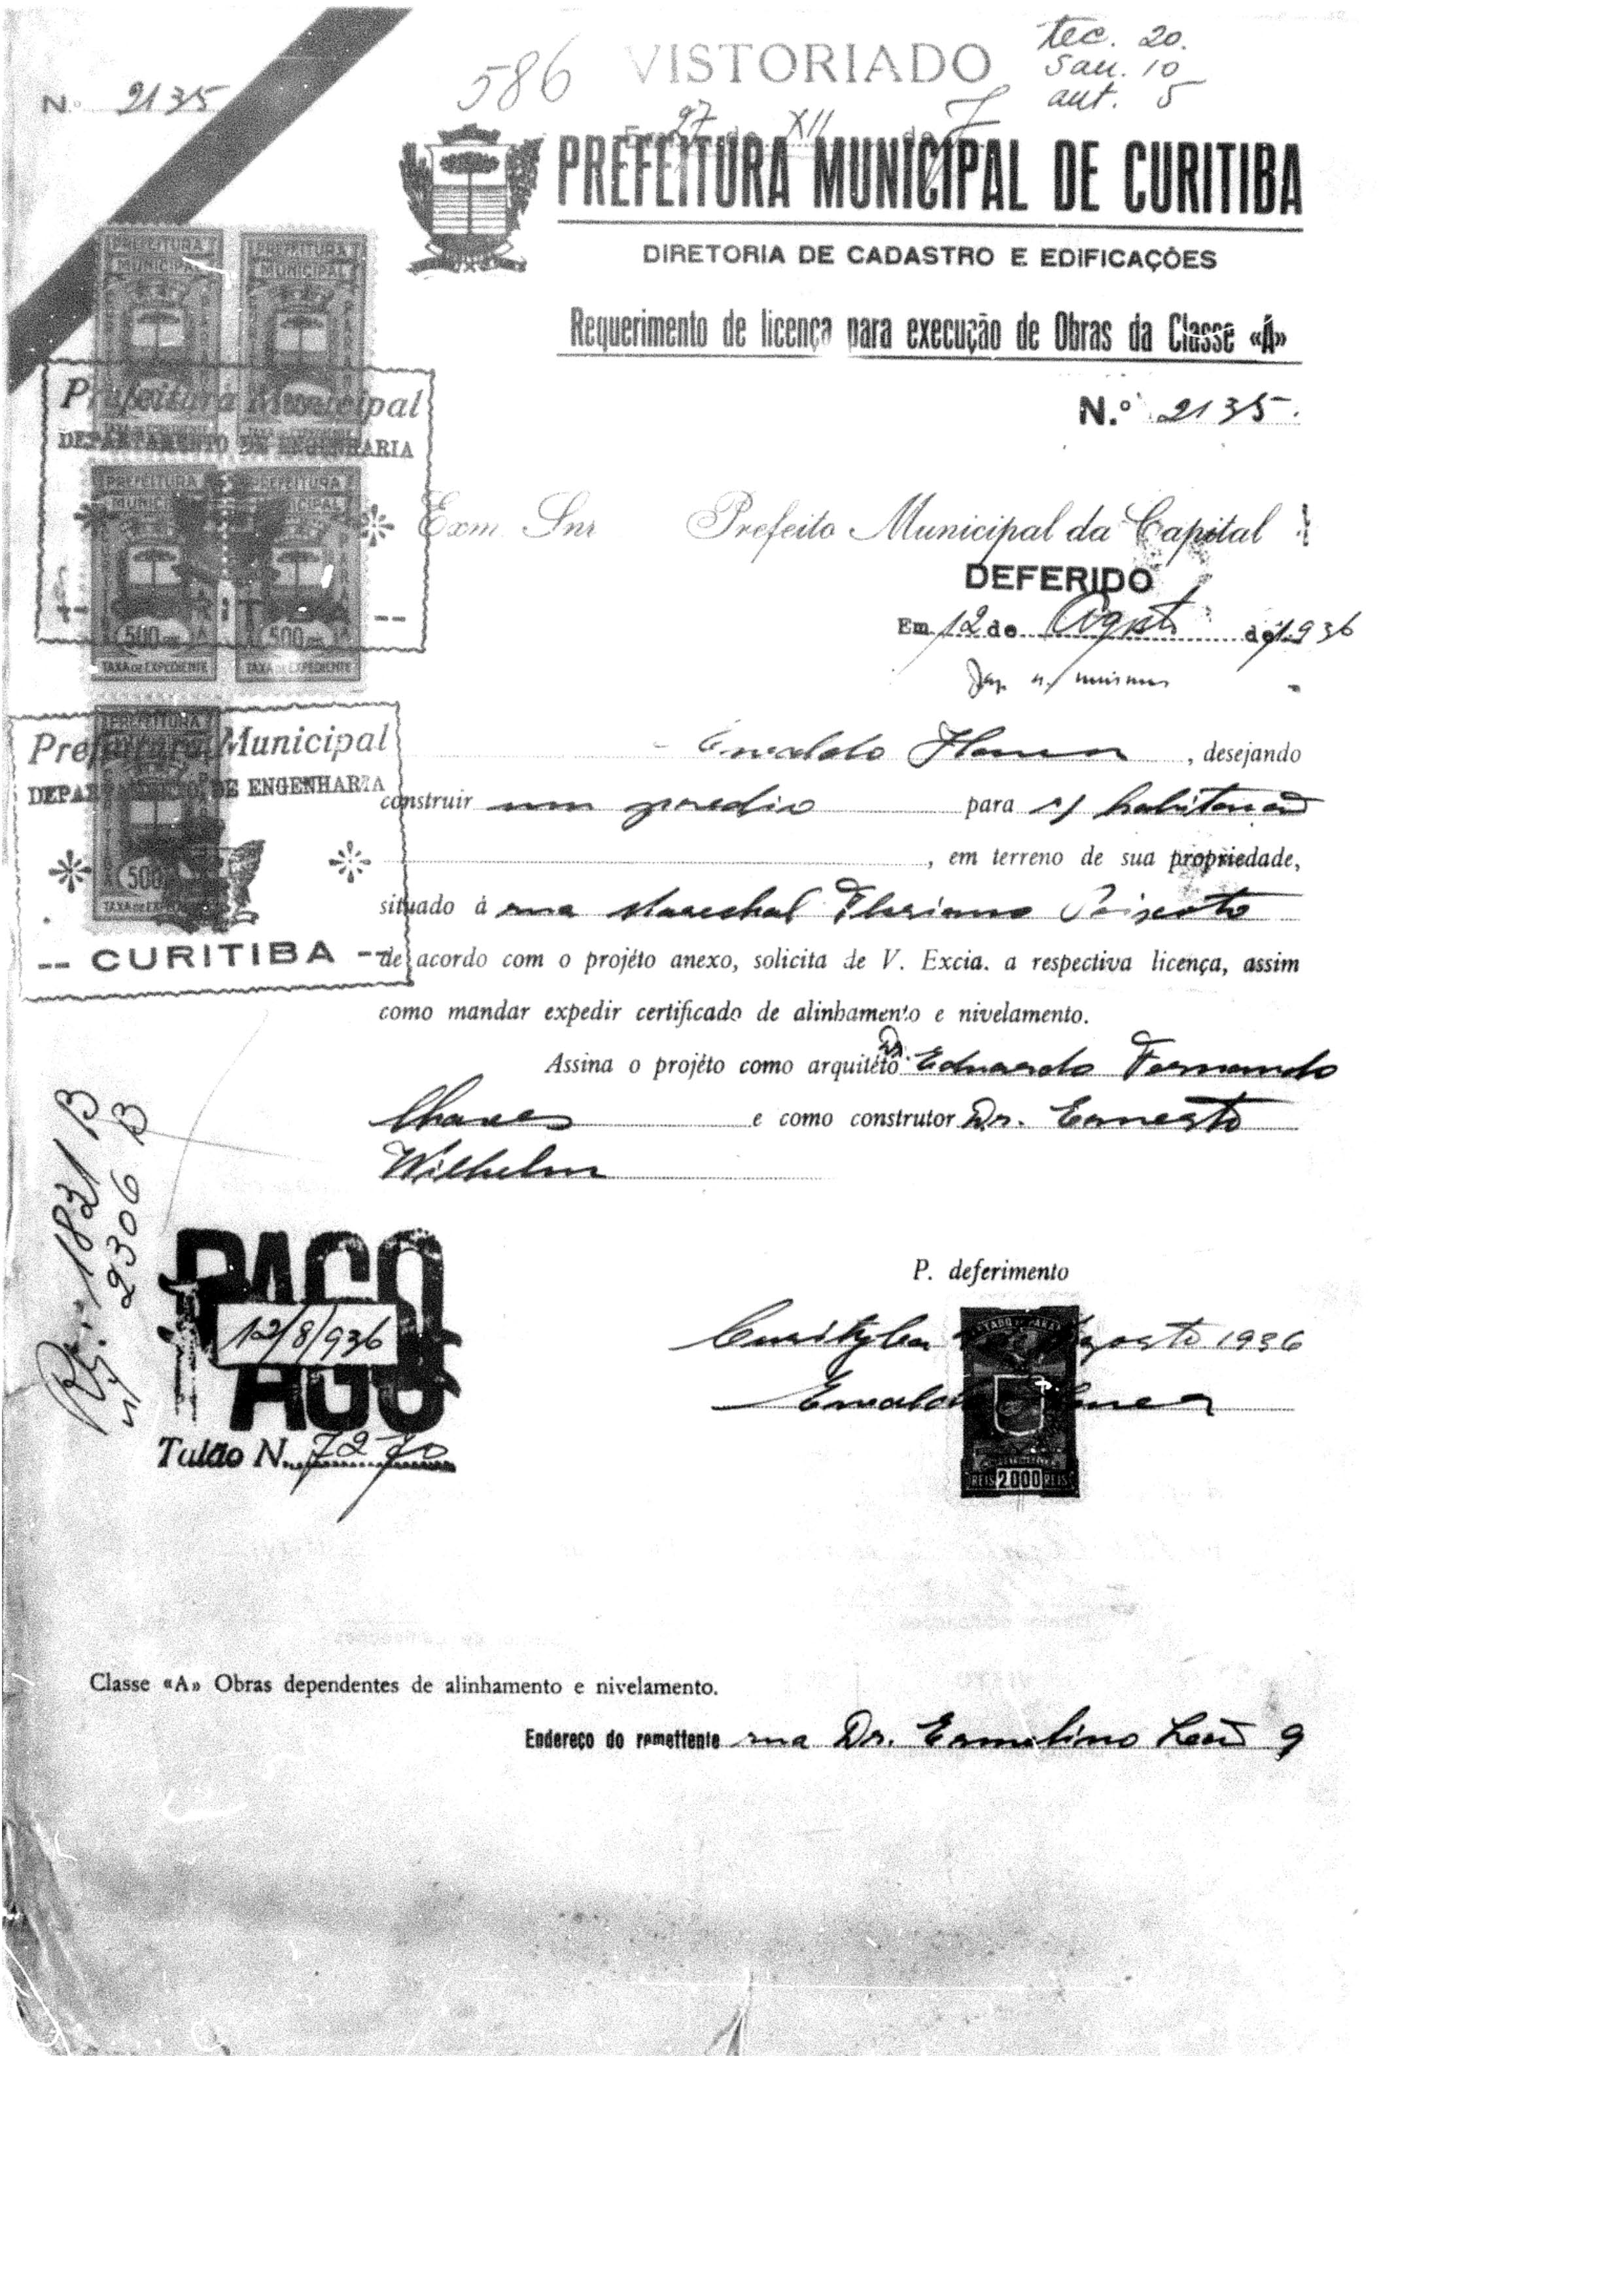 N.º 2135
586
VISTORIADO
tec. 20.
san. 10
aut. 5
Em 27 de XII de 7
PREFEITURA MUNICIPAL DE CURITIBA
DIRETORIA DE CADASTRO E EDIFICAÇÕES
Requerimento de licença para execução de Obras da Classe «A»
N.º 2135.
PREFEITURA MUNICIPAL
PREFEITURA MUNICIPAL
Prefeitura Municipal
DEPARTAMENTO DE ENGENHARIA
PREFEITURA MUNICIPAL
PREFEITURA MUNICIPAL
500
500
TAXA DE EXPEDIENTE
TAXA DE EXPEDIENTE
Exm. Snr Prefeito Municipal da Capital
DEFERIDO
Em 12 de Agosto de 1936
PREFEITURA
Prefeitura Municipal
DEPARTAMENTO DE ENGENHARIA
500
TAXA DE EXPEDIENTE
-- CURITIBA --
, desejando
construir um predio para s/ habitação
, em terreno de sua propriedade,
situado á rua Marechal Floriano Peixoto
de acordo com o projéto anexo, solicita de V. Excia. a respectiva licença, assim
como mandar expedir certificado de alinhamento e nivelamento.
Assina o projéto como arquitéto Dr. Eduardo Fernando
Chaves e como construtor Dr. Ernesto
Wilhelm
1821 B
2306 B
PAGO
12/8/936
Talão N. 7270
P. deferimento
Curityba Agosto 1936
ESTADO DO PARANÁ
REIS 2000 REIS
Classe «A» Obras dependentes de alinhamento e nivelamento.
Endereço do remettente rua Dr. Ermelino Leão 9